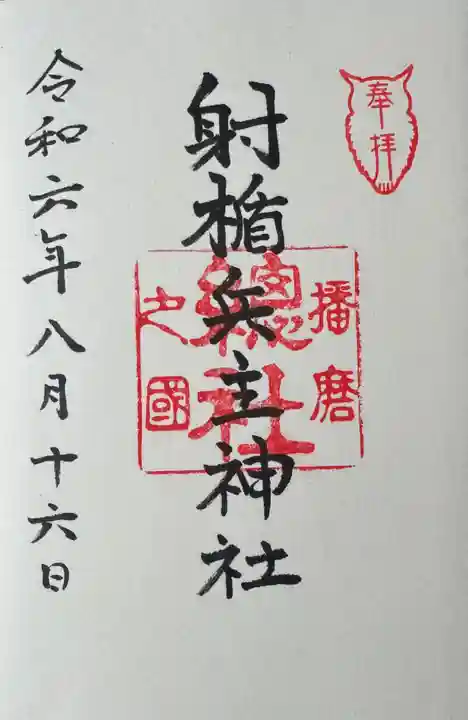 奉拝
播磨
總社
之國
射楯兵主神社
令和六年八月十六日